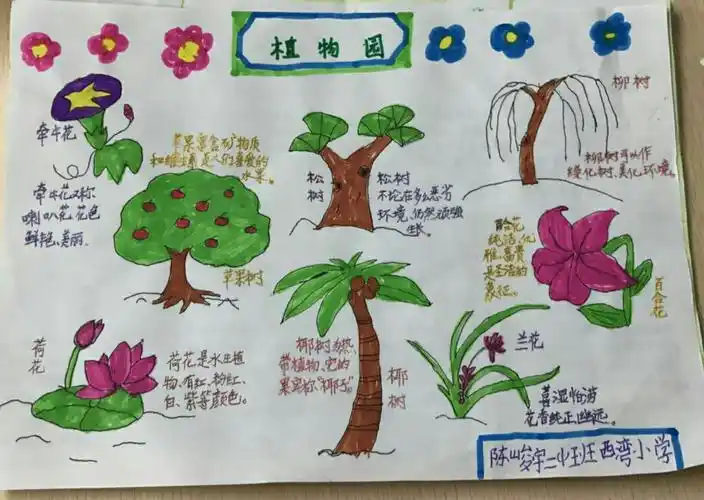 植物园
牵牛花
牵牛花又称
喇叭花,花色
鲜艳、美丽。
苹果富含矿物质
和维生素是人们喜爱的
水果。
苹果树
松
树
松树
不论在多么恶劣
环境,仍然顽强
生长。
柳树
柳树可以作
绿化树、美化环境。
百合花
纯洁、优
雅、富贵
是圣洁的
象征。
百合花
荷
花
荷花是水生植
物,有红、粉红、
白、紫等颜色。
椰树为热
带植物、它的
果实称“椰子”。
椰
树
兰花
喜湿怕涝
花香纯正幽远。
二 班西湾小学